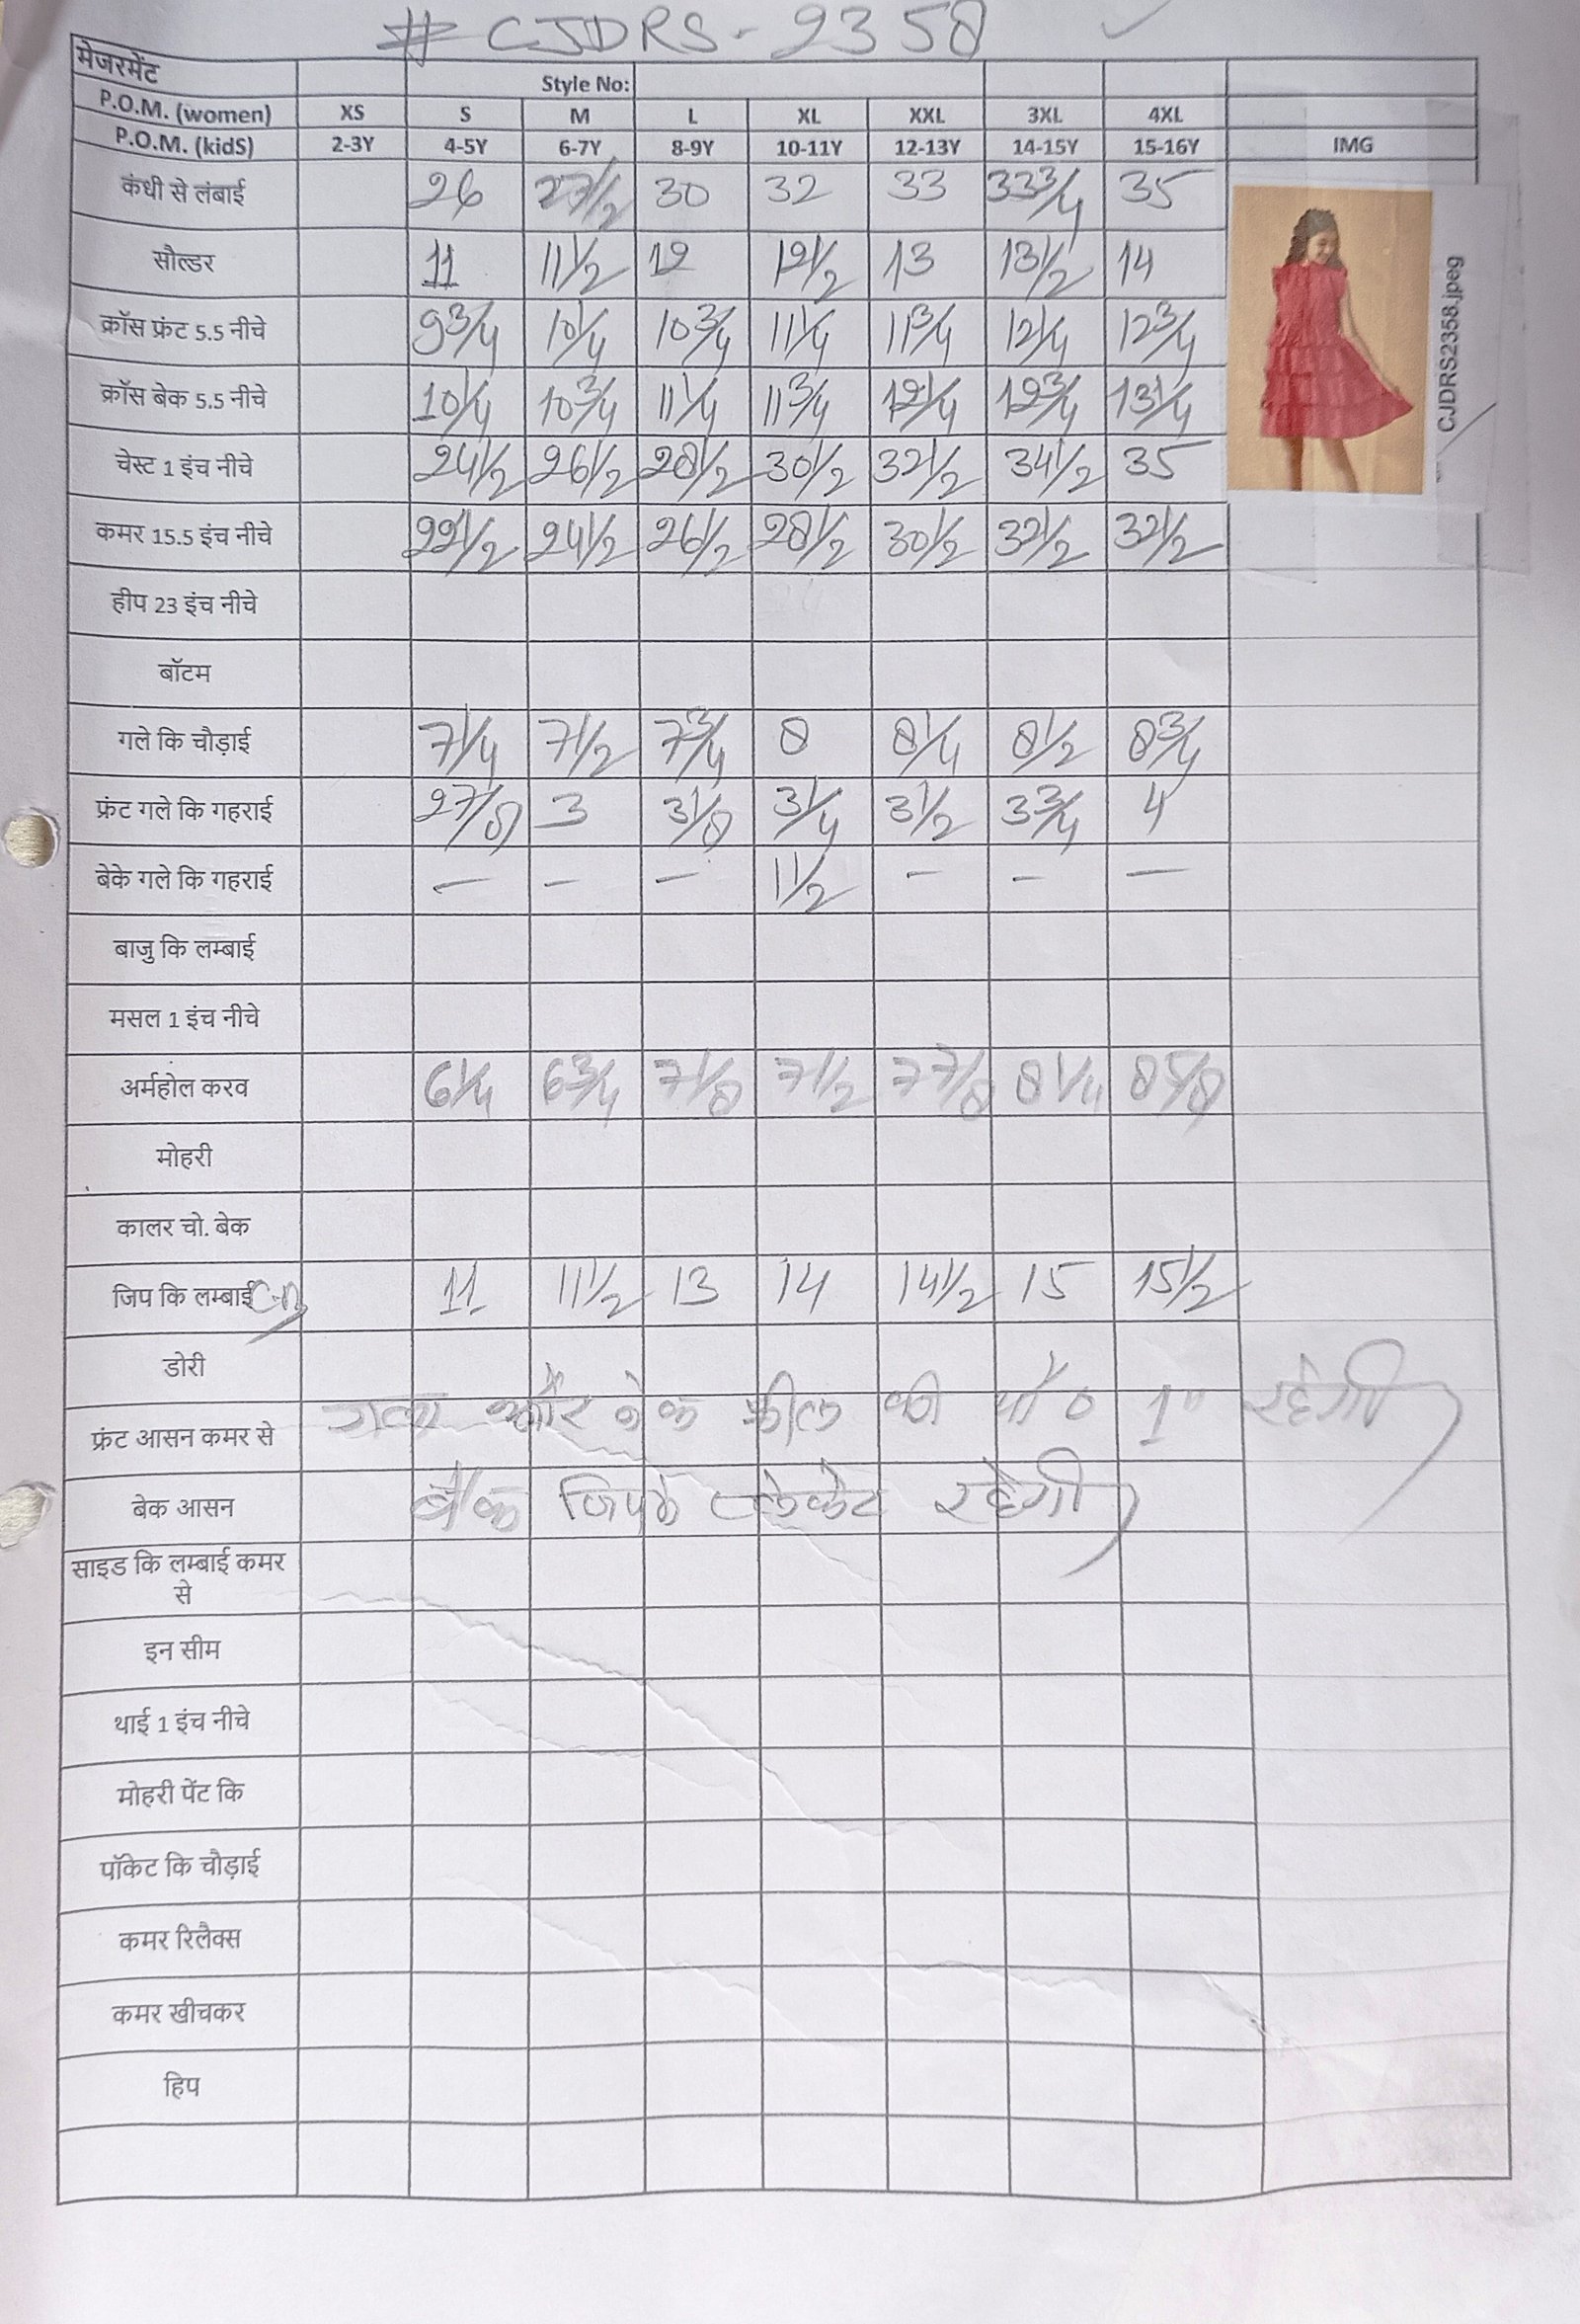 # CJDRS - 2358
मेजरमेंट Style No:
P.O.M. (women) XS S M L XL XXL 3XL 4XL
P.O.M. (kidS) 2-3Y 4-5Y 6-7Y 8-9Y 10-11Y 12-13Y 14-15Y 15-16Y IMG
कंधी से लंबाई 26 27 1/2 30 32 33 33 3/4 35
CJDRS2358.jpeg
सौल्डर 11 11 1/2 12 12 1/2 13 13 1/2 14
क्रॉस फ्रंट 5.5 नीचे 9 3/4 10 1/4 10 3/4 11 1/4 11 3/4 12 1/4 12 3/4
क्रॉस बेक 5.5 नीचे 10 1/4 10 3/4 11 1/4 11 3/4 12 1/4 12 3/4 13 1/4
चेस्ट 1 इंच नीचे 24 1/2 26 1/2 28 1/2 30 1/2 32 1/2 34 1/2 35
कमर 15.5 इंच नीचे 22 1/2 24 1/2 26 1/2 28 1/2 30 1/2 32 1/2 32 1/2
हीप 23 इंच नीचे
बॉटम
गले कि चौड़ाई 7 1/4 7 1/2 7 3/4 8 8 1/4 8 1/2 8 3/4
फ्रंट गले कि गहराई 2 7/8 3 3 1/8 3 1/4 3 1/2 3 3/4 4
बेके गले कि गहराई — — — 1 1/2 — — —
बाजु कि लम्बाई
मसल 1 इंच नीचे
अर्महोल करव 6 1/4 6 3/4 7 1/8 7 1/2 7 7/8 8 1/4 8 5/8
मोहरी
कालर चो. बेक
जिप कि लम्बाई 11 11 1/2 13 14 14 1/2 15 15 1/2
डोरी
फ्रंट आसन कमर से गला और नेक फ्रील की चौ० 1" रहेगी
बेक आसन बैक जिपके प्लेकेट रहेगी
साइड कि लम्बाई कमर
से
इन सीम
थाई 1 इंच नीचे
मोहरी पेंट कि
पॉकेट कि चौड़ाई
कमर रिलैक्स
कमर खीचकर
हिप